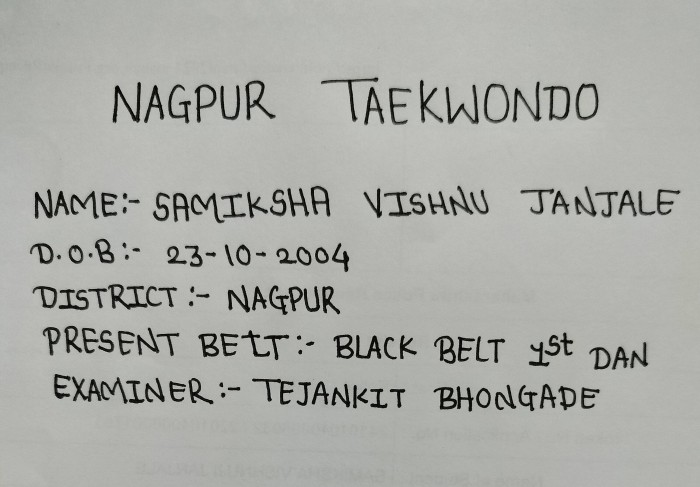 NAGPUR TAEKWONDO
NAME:- SAMIKSHA VISHNU JANJALE
D.O.B:- 23-10-2004
DISTRICT:- NAGPUR
PRESENT BELT:- BLACK BELT 1st DAN
EXAMINER:- TEJANKIT BHONGADE